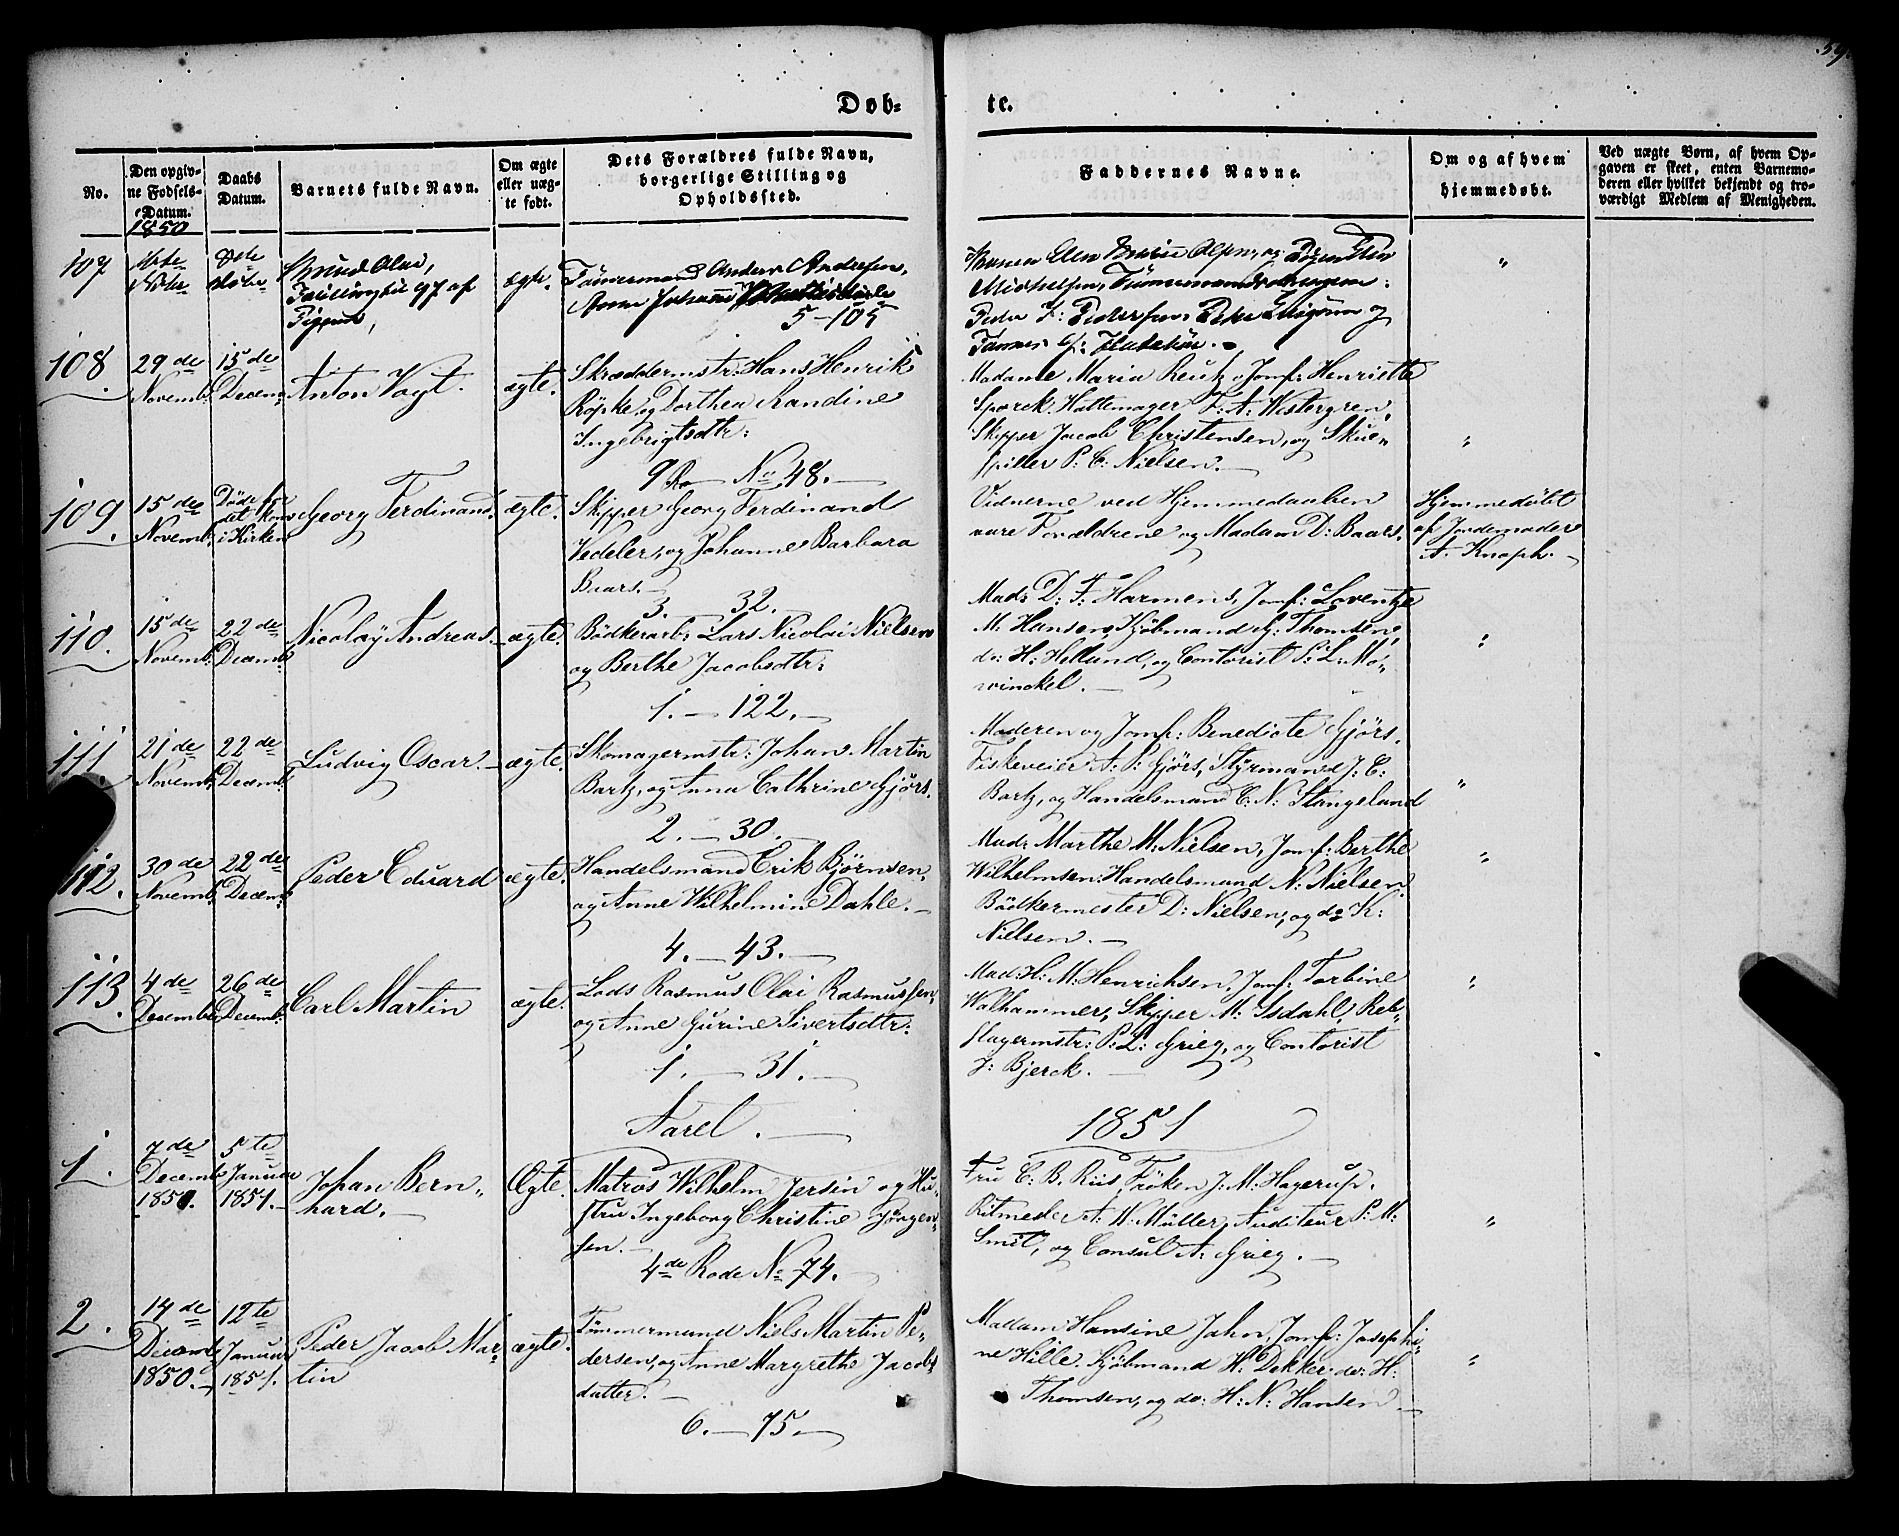 59.
Døb=
te.
No.
Den opgiv=
ne Fødsels=
Datum.
1850
Daabs
Datum.
Barnets fulde Navn.
Om ægte
eller uæg=
te født.
Dets Forældres fulde Navn,
borgerlige Stilling og
Opholdssted.
Faddernes Navne.
Om og af hvem
hjemmedøbt.
Ved uægte Børn, af hvem Op=
gaven er skeet, enten Barnemo=
deren eller hvilket bekjendt og tro=
værdigt Medlem af Menigheden.
107
8de
Knud Olai,
Tvillingbr: 97 af
Pigerne,
ægte.
Tømmermand Anders Andersen,
Anne Johanne
5 - 105
Olsen, og
Michelsen, Tømmermand
Peder Pedersen, Peder og
"
108.
29de
Novemb:
15de
Decem:
Anton Vogt.
ægte.
Skræddermstr: Hans Henrik
Röpke, og Dorthea Randine
Ingebrigtsdtr:
9 Ro No 48.
Madame Maria Reutz, Jomf: Henriette
Spørck, Hattemager F: A: Westergren,
Skipper Jacob Christensen, og Skue„
spiller P: C: Nielsen.
"
109.
15de
Novemb:
Døde før
det kom
i Kirken
Georg Ferdinand.
ægte.
Skipper Georg Ferdinand
Vedeler, og Johanne Barbara
Baars.
3. 32.
Vidnerne ved Hjemmedaaben
vare Forældrene og Madam D: Baars.
Hjemmedöbt
af Jordemoder
A. Knoph.
110.
15de
Novemb:
22de
Decemb:
Nicolay Andreas.
ægte.
Bödkerarb: Lars Nicolai Nielsen
og Berthe Jacobsdtr:
1. - 122.
Mad: D: F: Harmens, Jomf: Loventze
M: Hansen, Kjöbmand G: Thomsen,
do: H: Helland, og Contorist P: L: Mo„
winckel.
"
111.
21de
Novemb:
22de
Decemb:
Ludvig Oscar.
ægte.
Skomagermstr: Johan Martin
Bartz, og Anna Cathrine Gjørs.
2. - 30.
Moderen og Jomf: Benedicte Gjørs.
Fiskeveier A: P: Gjørs, Styrmand J: C:
Bartz, og Handelsmand C: N: Stangeland
"
112.
30de
Novemb:
22de
Decem:
Peder Eduard
ægte.
Handelsmand Erik Bjørnsen,
og Anne Wilhelmine Dahle.
4. - 43.
Mad: Marthe M: Nielsen, Jomf: Berthe
Wilhelmsen. Handelsmand N: Nielsen,
Bödkermester D: Nielsen, og do K:
Nielsen.
"
113.
4de
Decemb:
26de
Decemb:
Carl Martin
ægte.
Lods Rasmus Olai Rasmussen,
og Anne Gurine Sivertsdtr:
1. - 31.
Mad: H: M: Henrichsen, Jomf: Torbine
Walhammer, Skipper M: Isdahl, Reb„
slagermstr: P: L: Grieg, og Contorist
J: Bjerck.
"
Aaret.
1851
1.
7de
Decemb:
1850.
5te
Januar
1851.
Johan Bern„
hard.
Ægte.
Matros Wilhelm Jersin og Hu„
stru Ingeborg Christine Jörgen„
sen.
4de Rode No 74.
Fru C. B. Riis, Fröken J: M: Hagerup,
Ritmester A: W: Müller, Auditeur P: M:
Smit, og Consul A: Grieg.
"
2.
14de
Decemb:
1850.
12te
Januar
1851.
Peder Jacob Mar„
tin
ægte.
Tömmermand Niels Martin Pe„
dersen, og Anne Margrethe Jacobs
datter.
6. - 75.
Madam Hansine Jahn, Jomf: Josephi„
ne Hille. Kjöbmand H: Dekker, do: H:
Thomsen, og do: H: N: Hansen.
"